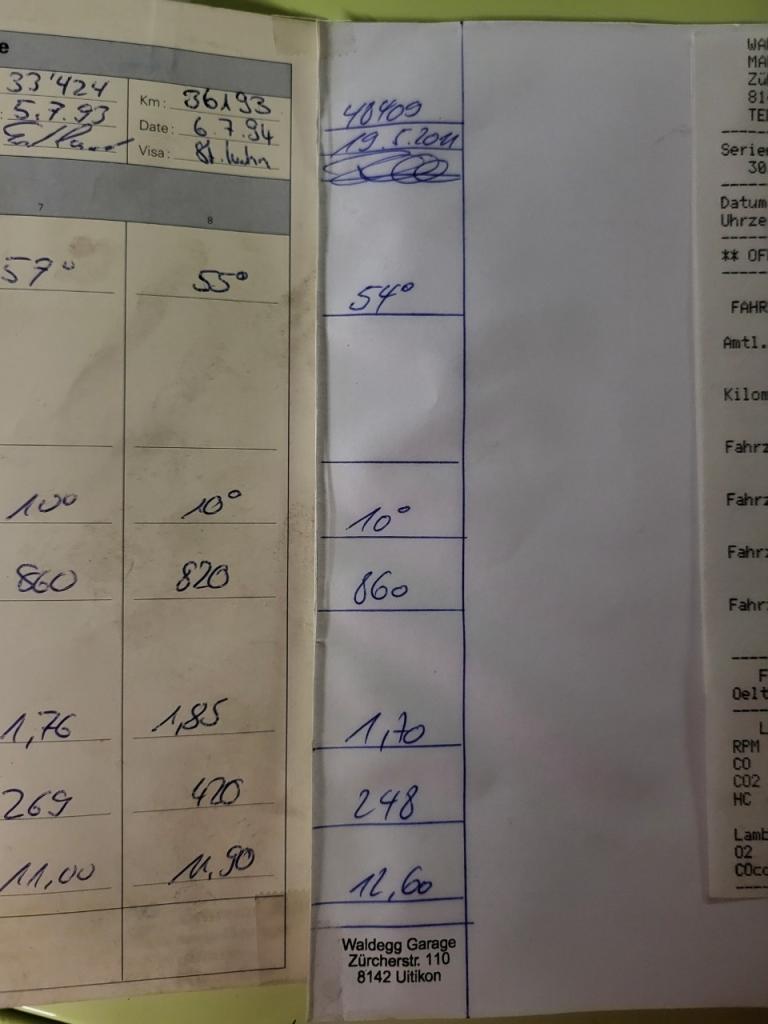 e
33'424
5.7.93
7
57°
10°
860
1,76
269
11,00
Km: 36193
Date: 6.7.94
Visa:
8
55°
10°
820
1,85
420
11,90
48409
19.5.2011
54°
10°
860
1,70
248
12,60
Waldegg Garage
Zürcherstr. 110
8142 Uitikon
WA
MA
Zü
81
TE
Serie
30
Datum
Uhrze
** OF
FAHR
Amtl.
Kilom
Fahrz
Fahrz
Fahrz
Fahrz
F
Oelt
L
RPM
CO
CO2
HC
Lamb
O2
COco